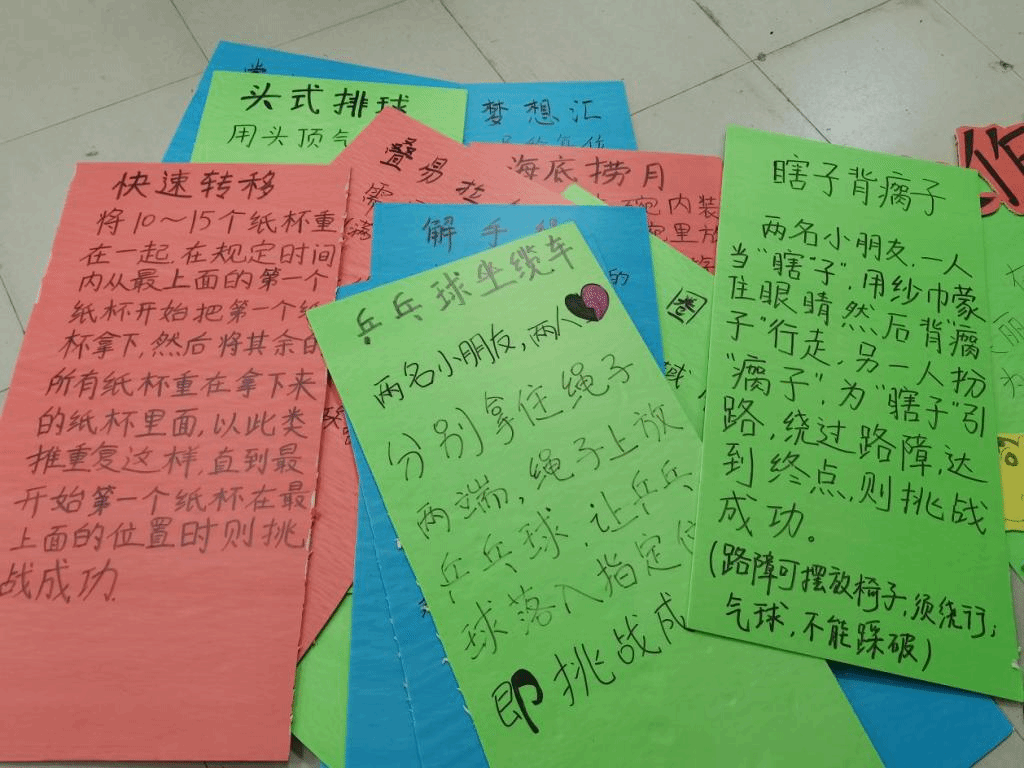 头式排球
用头顶气
梦想汇
快速转移
将10～15个纸杯重
在一起,在规定时间
内从最上面的第一个
纸杯开始把第一个纸
杯拿下,然后将其余的
所有纸杯重在拿下来
的纸杯里面,以此类
推重复这样,直到最
开始第一个纸杯在最
上面的位置时则挑
战成功.
叠易拉
需
海底捞月
碗内装
里放
解手
的
圈
域
乒乓球坐缆车
两名小朋友,两人
分别拿住绳子
两端,绳子上放
乒乓球.让乒乓
球落入指定位
即挑战成
瞎子背瘸子
两名小朋友,一人
当"瞎"子",用纱巾蒙
住眼睛然后背"瘸
子"行走,另一人扮
"瘸子",为"瞎子"引
路,绕过路障,达
到终点,则挑战
成功。
(路障可摆放椅子,须绕行;
气球,不能踩破)